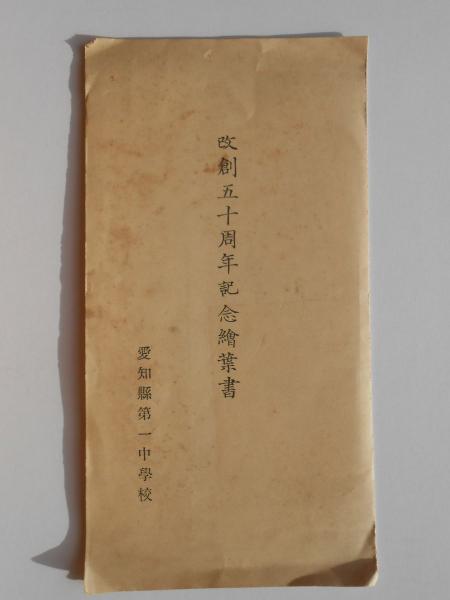 改創五十周年記念繪葉書
愛知縣第一中學校